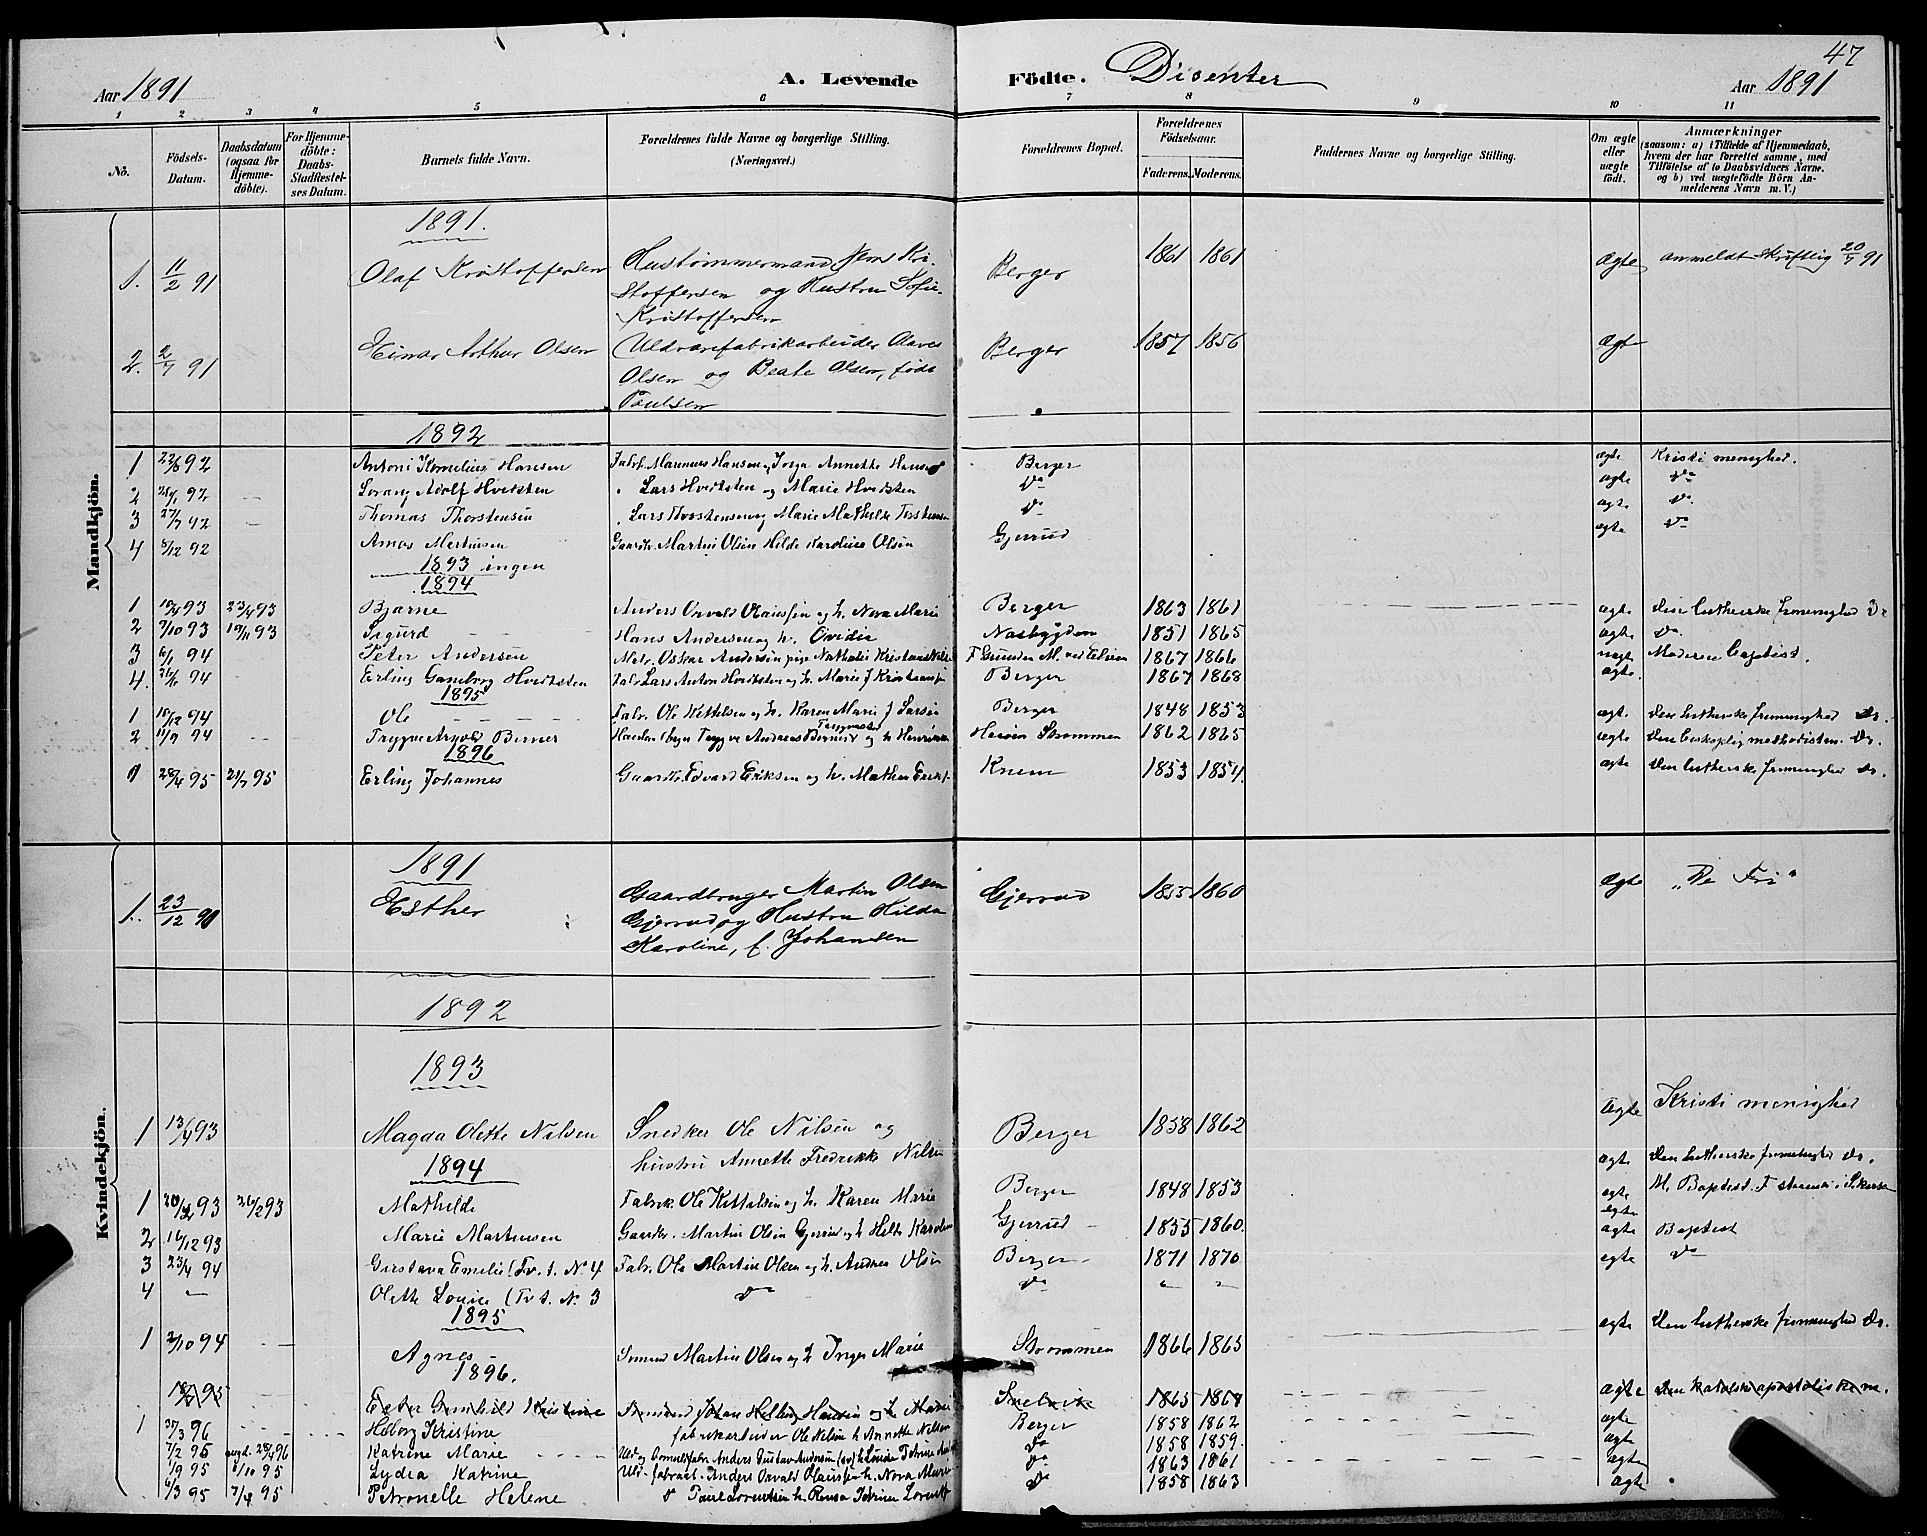 47
Aar 1891 A. Levende Födte. Disenter Aar 1891
1 2 3 4 5 6 7 8 9 10 11
No. Födsels-Datum. Daabsdatum (ogsaa for Hjemme-döbte). For Hjemme-döbte: Daabs-Stadfæstel-ses Datum. Barnets fulde Navn. Forældrenes fulde Navne og borgerlige Stilling. (Næringsvei.) Forældrenes Bopæl. Forældrenes Födselsaar. Faderens. Moderens. Faddernes Navne og borgerlige Stilling. Om ægte eller uægte födt. Anmærkninger (saasom: a) i Tilfælde af Hjemmedaab, hvem der har forrettet samme, med Tilföielse af to Daabsvidners Navne, og b) ved uægtefödte Börn An-melderens Navn m. V.)
Mandkjön.
1891.
1. 11/2 91 Olaf Kristoffersen Hustømmermand Jens Kri- Berger 1861 1861 Ægte anmeldt skriftlig 20/7 91
stoffersen og Hustru Sofie
Kristoffersen
2. 2/7 91 Einar Arthur Olsen Uldvarefabrikarbeider Olaves Berger 1857 1856 Ægte
Olsen og Beate Olsen, født
Paulsen
1892
1 22/8 92 Antoni Kornelius Hansen Fabr. Marinius Hansen, Inga Annette Hansen Berger ægte Kristi menighed.
2 28/1 92 Lorang Adolf Hvidsten Lars Hvidtsten og Marie Hvidsten Do ægte Do
3 27/7 92 Thomas Thorstensen Lars Thorstensen og Marie Mathilde Do ægte Do
4 8/12 92 Amos Martinsen Gaardb. Martin Olsen Hilde Karoline Olsen Gjerrud ægte Do
1893 ingen
1894
1 10/4 93 23/4 93 Bjarne Anders Osvald Olaussen og h. Nora Marie Berger 1863 1861 ægte Den lutherske frimenighed Dr
2 7/10 93 19/11 93 Sigurd Hans Andersen og h. Ovidia Nasbygden 1851 1865 ægte Do.
3 6/1 94 Peter Andersen Oskar Andersen pige Nathalie 1867 1866 uægte Moderen Baptist.
4. 26/6 94 Erling Gamborg Hvidtsten Fabr Lars Anton Hvidtsten og h. Marie f Kristensen Berger 1867 1868 ægte.
1895
1 10/12 94 Ole Fabr. Ole Kittelsen og h. Karen Marie f Larsen Berger 1848 1853 ægte Den lutherske frimenighed Dr.
2 11/9 94 Trygve Arnold Berner Trygve Andreas Berner og h Strømmen 1862 1865 ægte Den biskoplig methodisten. Dr.
1896
1 28/4 95 21/7 95 Erling Johannes Gaardb. Edvard Eriksen og h. Mathea Knem 1853 1854. ægte Den lutherske frimenighed Dr.
Kvindekjön.
1891
1. 23/12 90 Esther Gaardbruger Martin Olsen Gjerrud 1855 1860 Ægte "De Fri"
Gjerrud og Hustru Hilda
Karoline, f. Johansen
1892
1893
1 13/4 93 Magda Olette Nilsen Snedker Ole Nilsen og Berger 1858 1862 Ægte Kristi menighed
hustru Annette Fredrikke Nilsen
1894 ægte Den lutherske frimenighed Dr.
1 20/12 93 26/2 93 Mathilde Fabrik. Ole Kittelsen og h. Karen Marie Berger 1848 1853 ægte M. Baptist. F
ægte
2 16/12 93 Marie Martinsen Gaardbr. Martin Olsen Gjerrud og h Hilda Karoline Gjerrud 1855 1860. ægte Baptist
3 23/4 94 Gustava Emelie (Tv. t. No 4 Fabr. Ole Martin Olsen og h. Andrea Olsen Berger 1871 1870 ægte Do
4 Olette Louise (Tv t. No 3 Do Do
1895
1 2/10 94 Agnes Martin Olsen og h Inga Marie Strømmen 1866 1865 ægte Den lutherske frimenighed Dr.
1896.
Ester Gunhild Kristine Johan Helling Hansen og h Marie Snelvik 1865 1868 Ægte Den Katolske apostoliske m.
1 31/3 96 Heborg Kristine fabrikarbeider Ole Nilsen h Annette Nilsen Berger 1858 1862 ægte
7/2 95 28/4 96 Katrine Marie Anders Gustav Andersen Do 1858 1859. ægte
1/9 95 6/10 95 Lydia Katrine Uld-fabrarb. Anders Osvald Olaussen h. Nora Marie Do 1863 1861 ægte
6/3 95 7/4 95 Petronelle Helene Do Paul Lorentsen h. Do 1858 1863 ægte